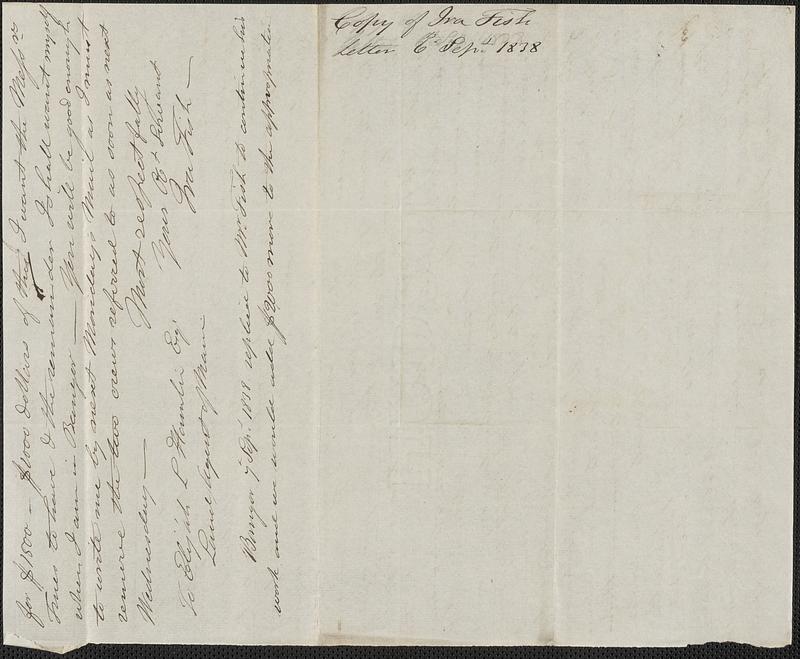 for $1500 – $1000 dollars of this I want the Messrs
Fines to have & the remainder I shall want myself
when I am in Bangor — You will be good enough
to write me by next Monday's Mail as I must
remove the two crews referred to as soon as next
Wednesday —
Most respectfully
Yours Obt Servant
Ira Fish —
To Elijah L Hamlin Esqr
Land Agent of Maine
Bangor 7 Sept. 1838 replied to Mr. Fish to continue his
work and we would add $2000 more to the appropriation
Copy of Ira Fish
letter 6 Sept. 1838